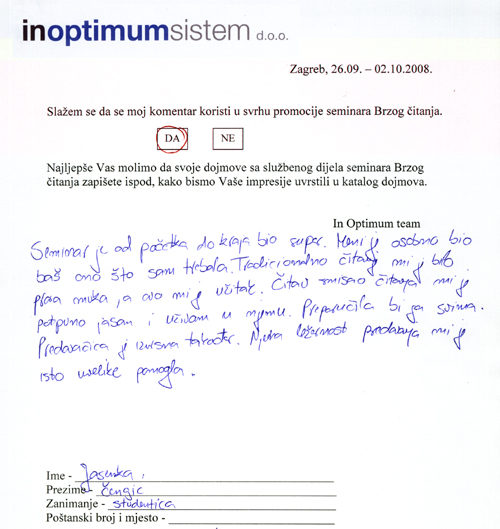 inoptimumsistem d.o.o.
Zagreb, 26.09. – 02.10.2008.
Slažem se da se moj komentar koristi u svrhu promocije seminara Brzog čitanja.
DA NE
Najljepše Vas molimo da svoje dojmove sa službenog dijela seminara Brzog
čitanja zapišete ispod, kako bismo Vaše impresije uvrstili u katalog dojmova.
In Optimum team
Seminar je od početka do kraja bio super. Meni je osobno bio
baš ono što sam trebala. Tradicionalno čitanje mi je bilo
prava muka, a ovo mi je užitak. Čitav smisao čitanja mi je
potpuno jasan i uživam u njemu. Preporučila bi ga svima.
Predavačica je izvrsna također. Njena ležernost predavanja mi je
isto uvelike pomogla.
Ime - Jasenka
Prezime - Čengić
Zanimanje - studentica
Poštanski broj i mjesto -